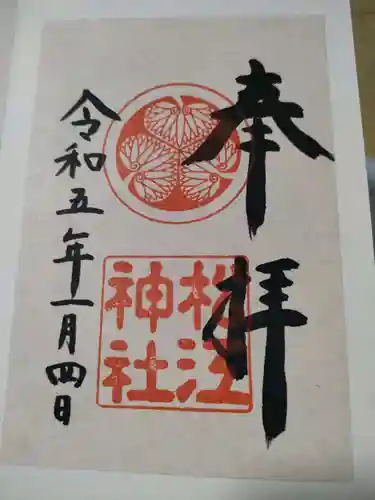 奉拝
松江神社
令和五年一月四日